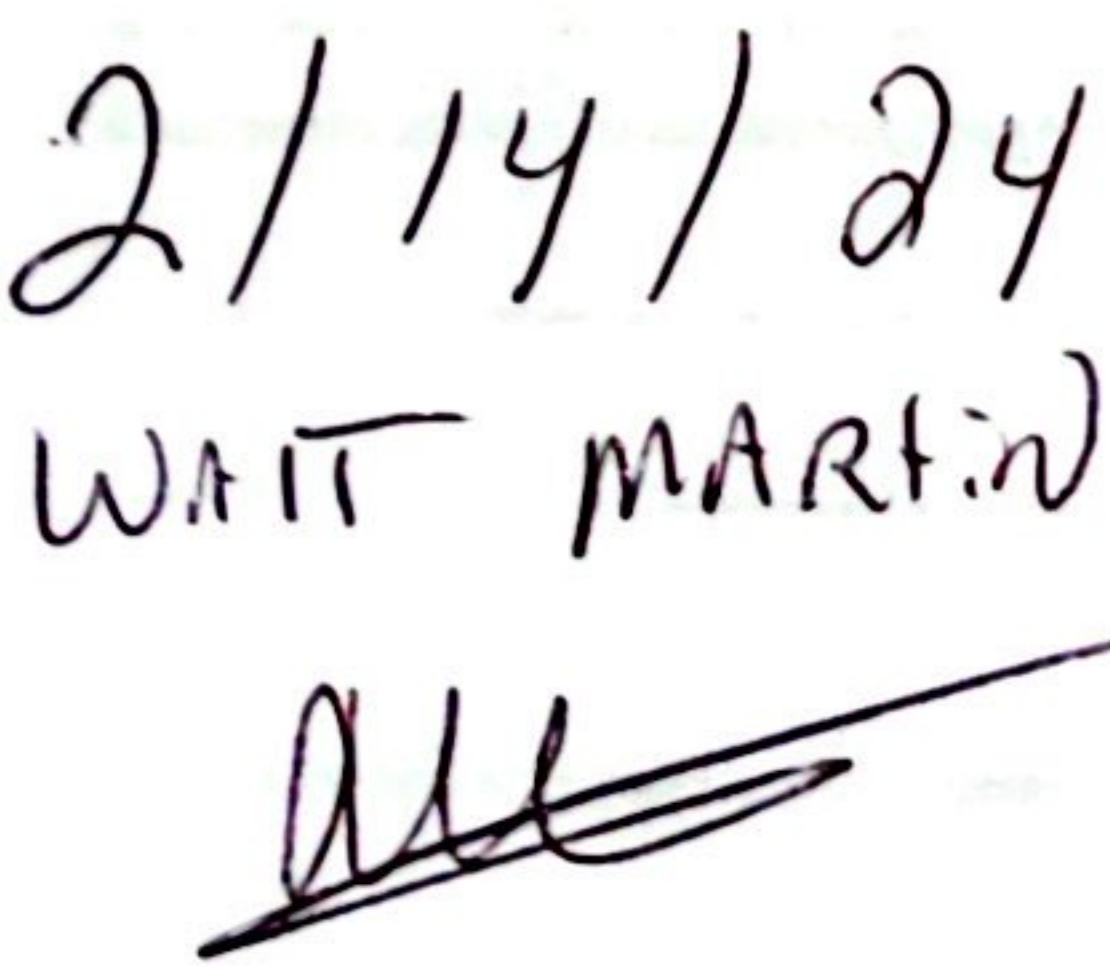 2/14/24
WATT MARTiN